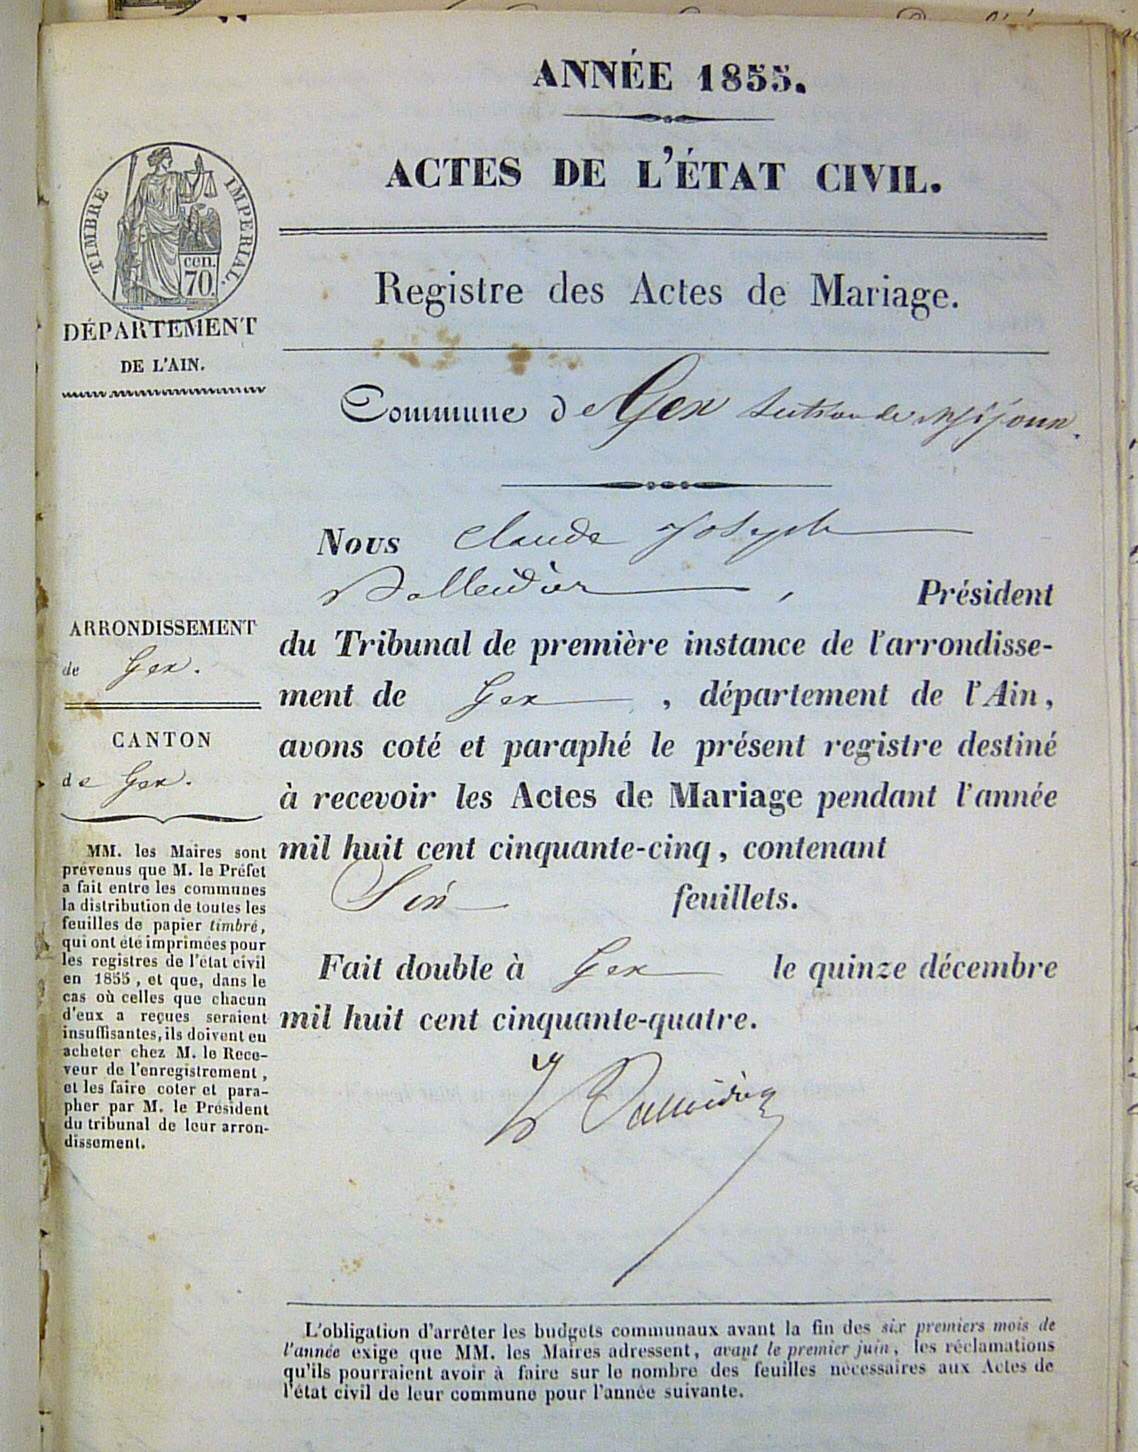 ANNÉE 1855.
ACTES DE L'ÉTAT CIVIL.
TIMBRE IMPERIAL.
cen.
70.
DÉPARTEMENT
DE L'AIN.
Registre des Actes de Mariage.
Commune de Gex section de Mijoux.
Nous Claude Joseph
Président
du Tribunal de première instance de l'arrondisse-
ment de Gex, département de l'Ain,
avons coté et paraphé le présent registre destiné
à recevoir les Actes de Mariage pendant l'année
mil huit cent cinquante-cinq, contenant
Six feuillets.
Fait double à Gex le quinze décembre
mil huit cent cinquante-quatre.
ARRONDISSEMENT
de Gex.
CANTON
de Gex.
MM. les Maires sont
prévenus que M. le Préfet
a fait entre les communes
la distribution de toutes les
feuilles de papier timbré,
qui ont été imprimées pour
les registres de l'état civil
en 1855, et que, dans le
cas où celles que chacun
d'eux a reçues seraient
insuffisantes, ils doivent en
acheter chez M. le Rece-
veur de l'enregistrement,
et les faire coter et para-
pher par M. le Président
du tribunal de leur arron-
dissement.
L'obligation d'arrêter les budgets communaux avant la fin des six premiers mois de
l'année exige que MM. les Maires adressent, avant le premier juin, les réclamations
qu'ils pourraient avoir à faire sur le nombre des feuilles nécessaires aux Actes de
l'état civil de leur commune pour l'année suivante.